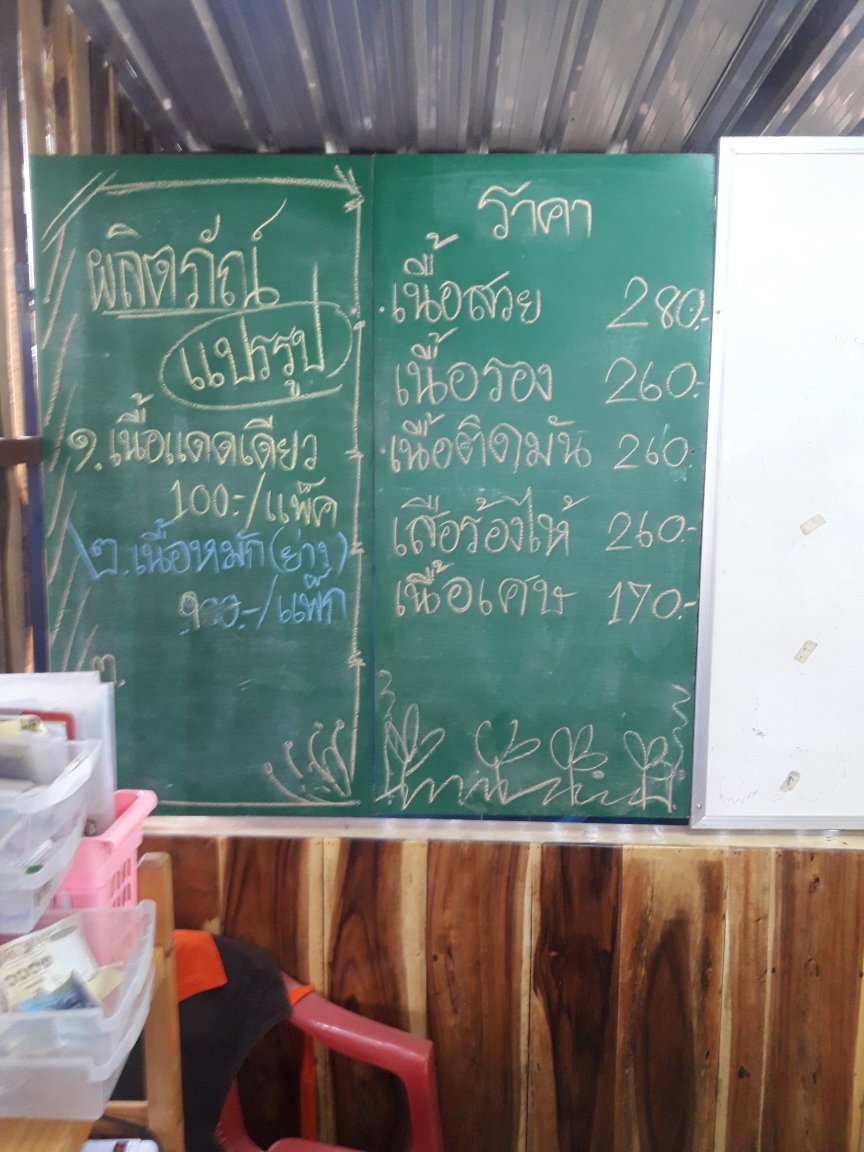 ผลิตภัณ์
แปรรูป
๑.เนื้อแดดเดียว
100.-/แพ็ค
๒.เนื้อหมัก(ย่าง)
100.-/แพ๊ก
๓.
ราคา
เนื้อสวย 280.-
เนื้อรอง 260.-
เนื้อติดมัน 260.
เสือร้องไห้ 260.-
เนื้อเศษ 170.-